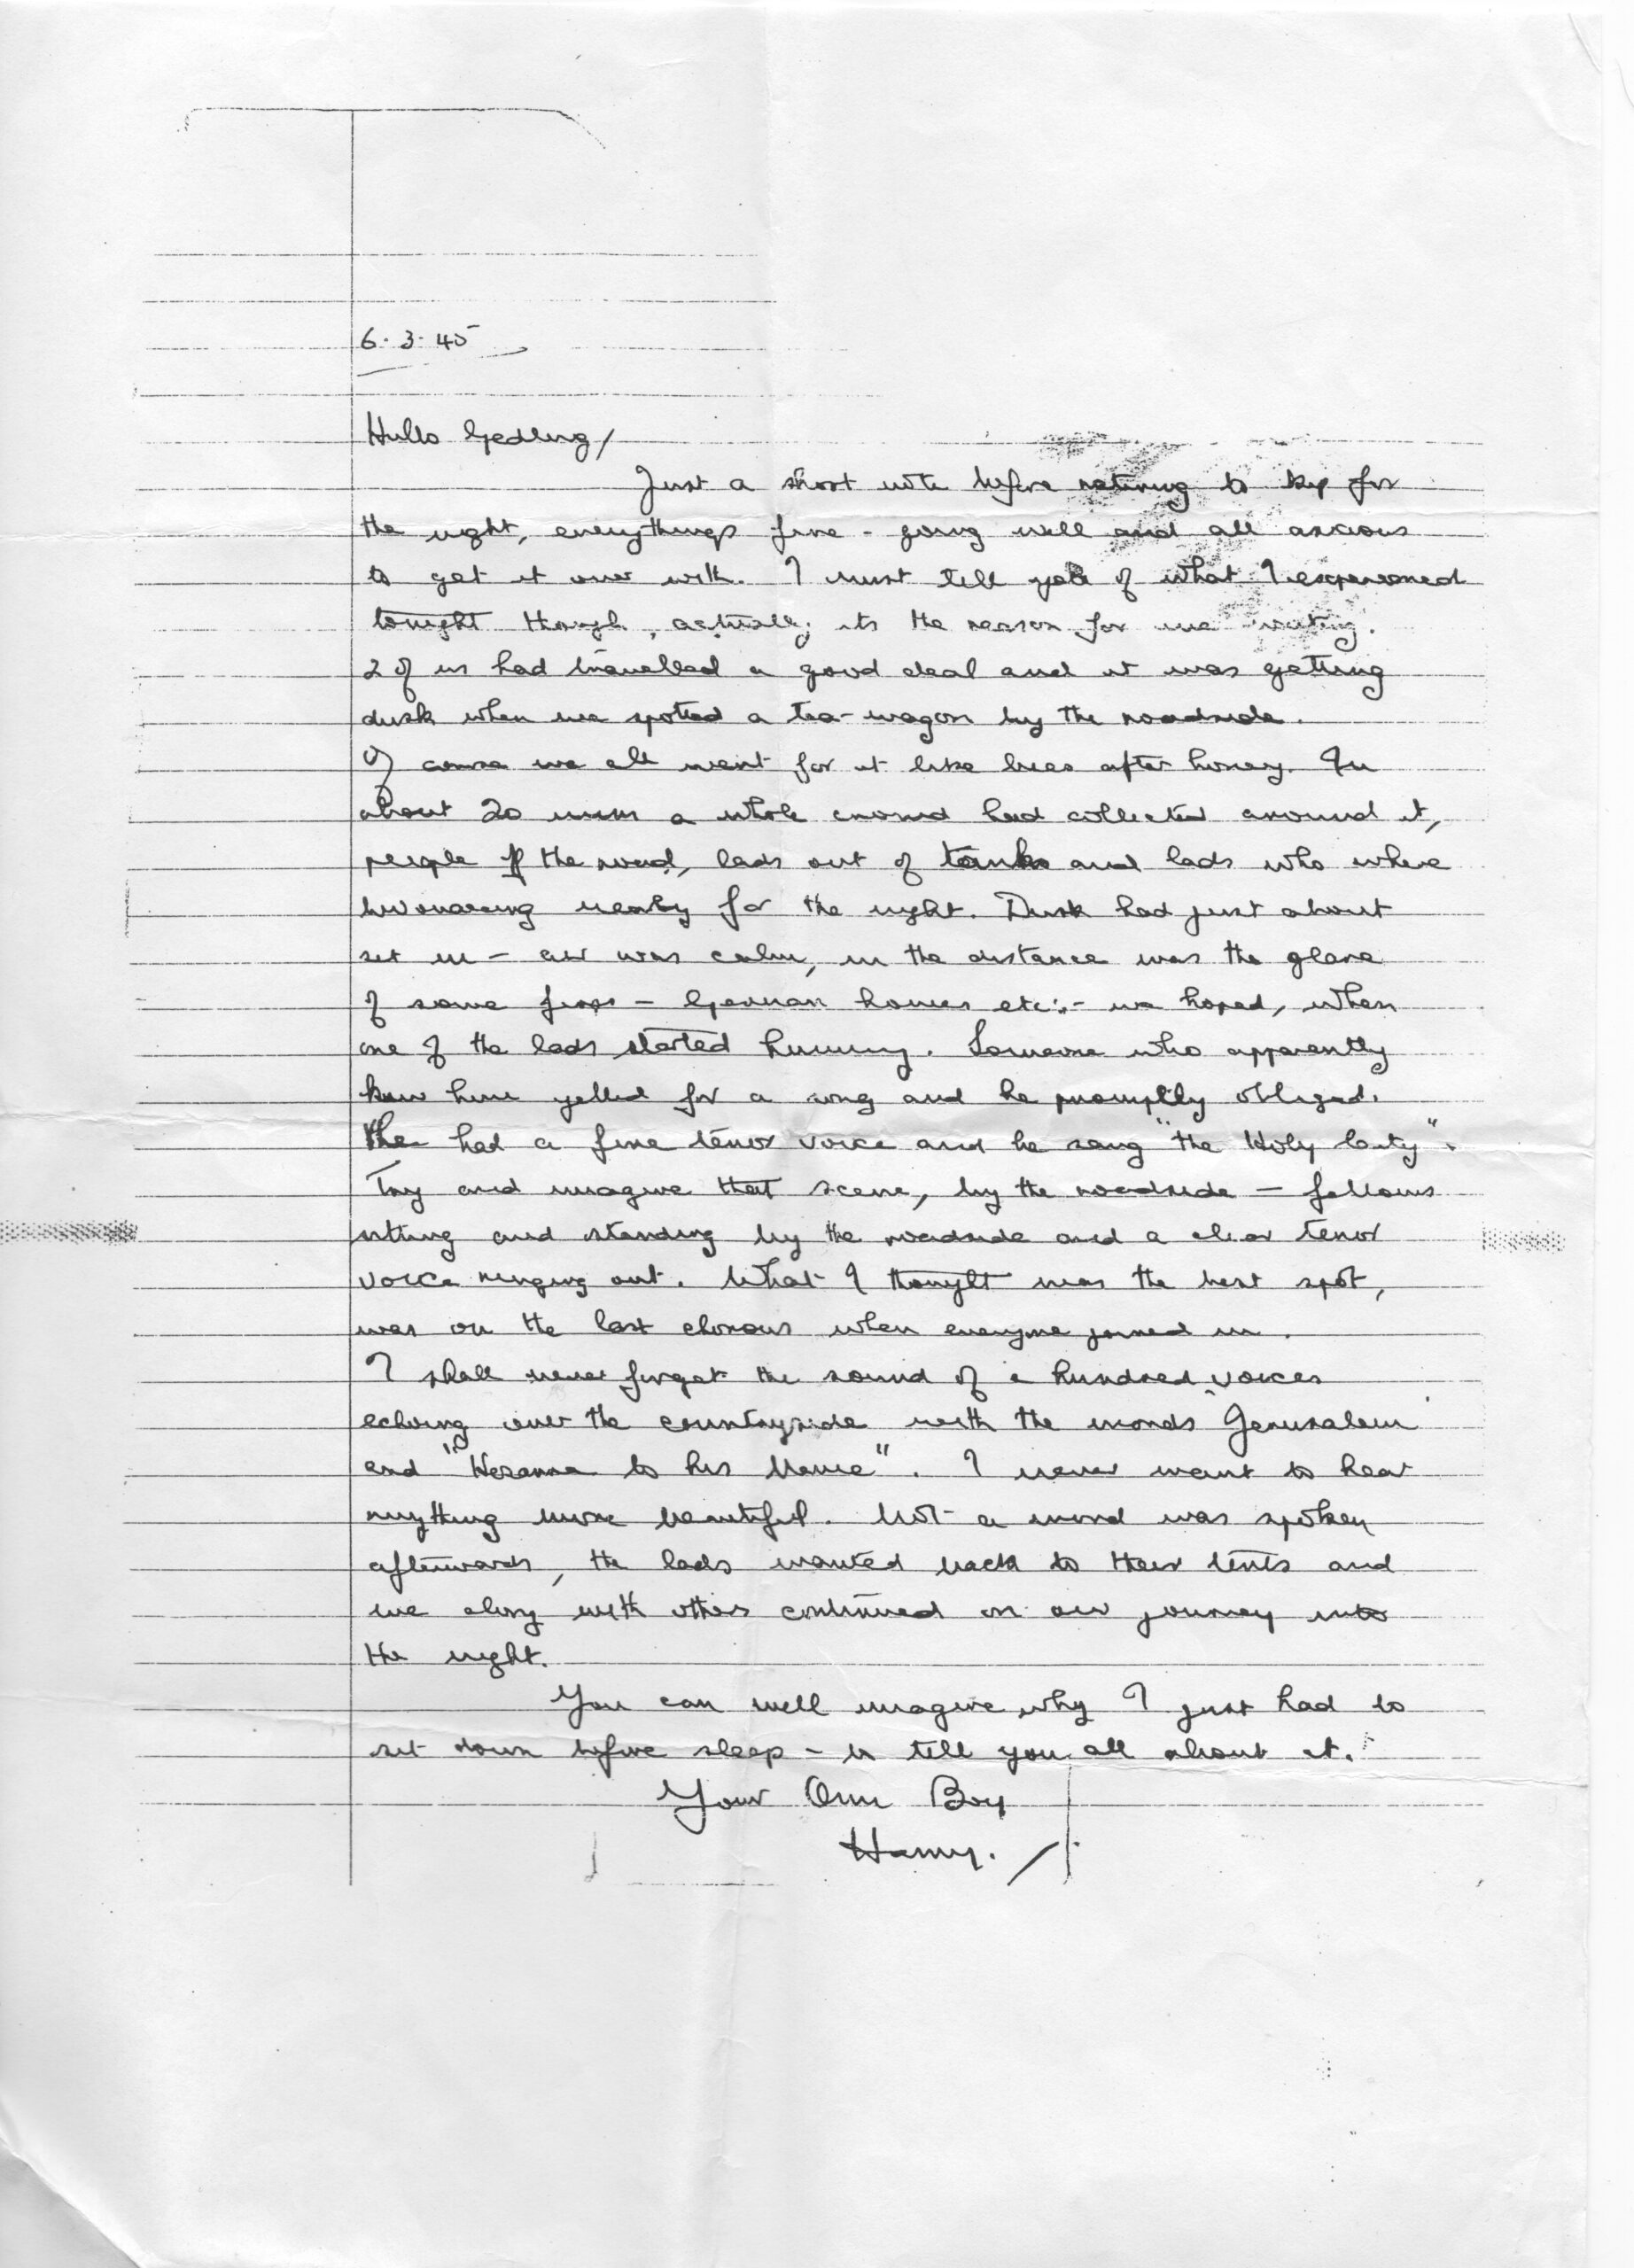 6.3.45
Hullo Gedling/
Just a short note before retiring to kip for
the night, everythings fine - going well and all anxious
to get it over with. I must tell you of what I experienced
tonight though, actually, its the reason for me writing.
2 of us had travelled a good deal and it was getting
dusk when we spotted a tea-wagon by the roadside.
Of course we all went for it like bees after honey. In
about 20 mins a whole crowd had collected around it,
people off the road, lads out of tanks and lads who where
bivouacing nearby for the night. Dusk had just about
set in - air was calm, in the distance was the glare
of some fires - German homes etc:- we hoped, when
one of the lads started humming. Someone who apparently
knew him yelled for a song and he promptly obliged.
He had a fine tenor voice and he sang "the Holy City".
Try and imagine that scene, by the roadside - fellows
sitting and standing by the roadside and a clear tenor
voice ringing out. What I thought was the best spot,
was on the last chorous when everyone joined in.
I shall never forget the sound of a hundred voices
echoing over the countryside with the words "Jerusalem"
and "Hosanna to his Name". I never want to hear
anything more beautiful. Not a word was spoken
afterwards, the lads wanted back to their tents and
we along with others continued on our journey into
the night.
You can well imagine why I just had to
sit down before sleep - to tell you all about it.
Your Own Boy
Harry.